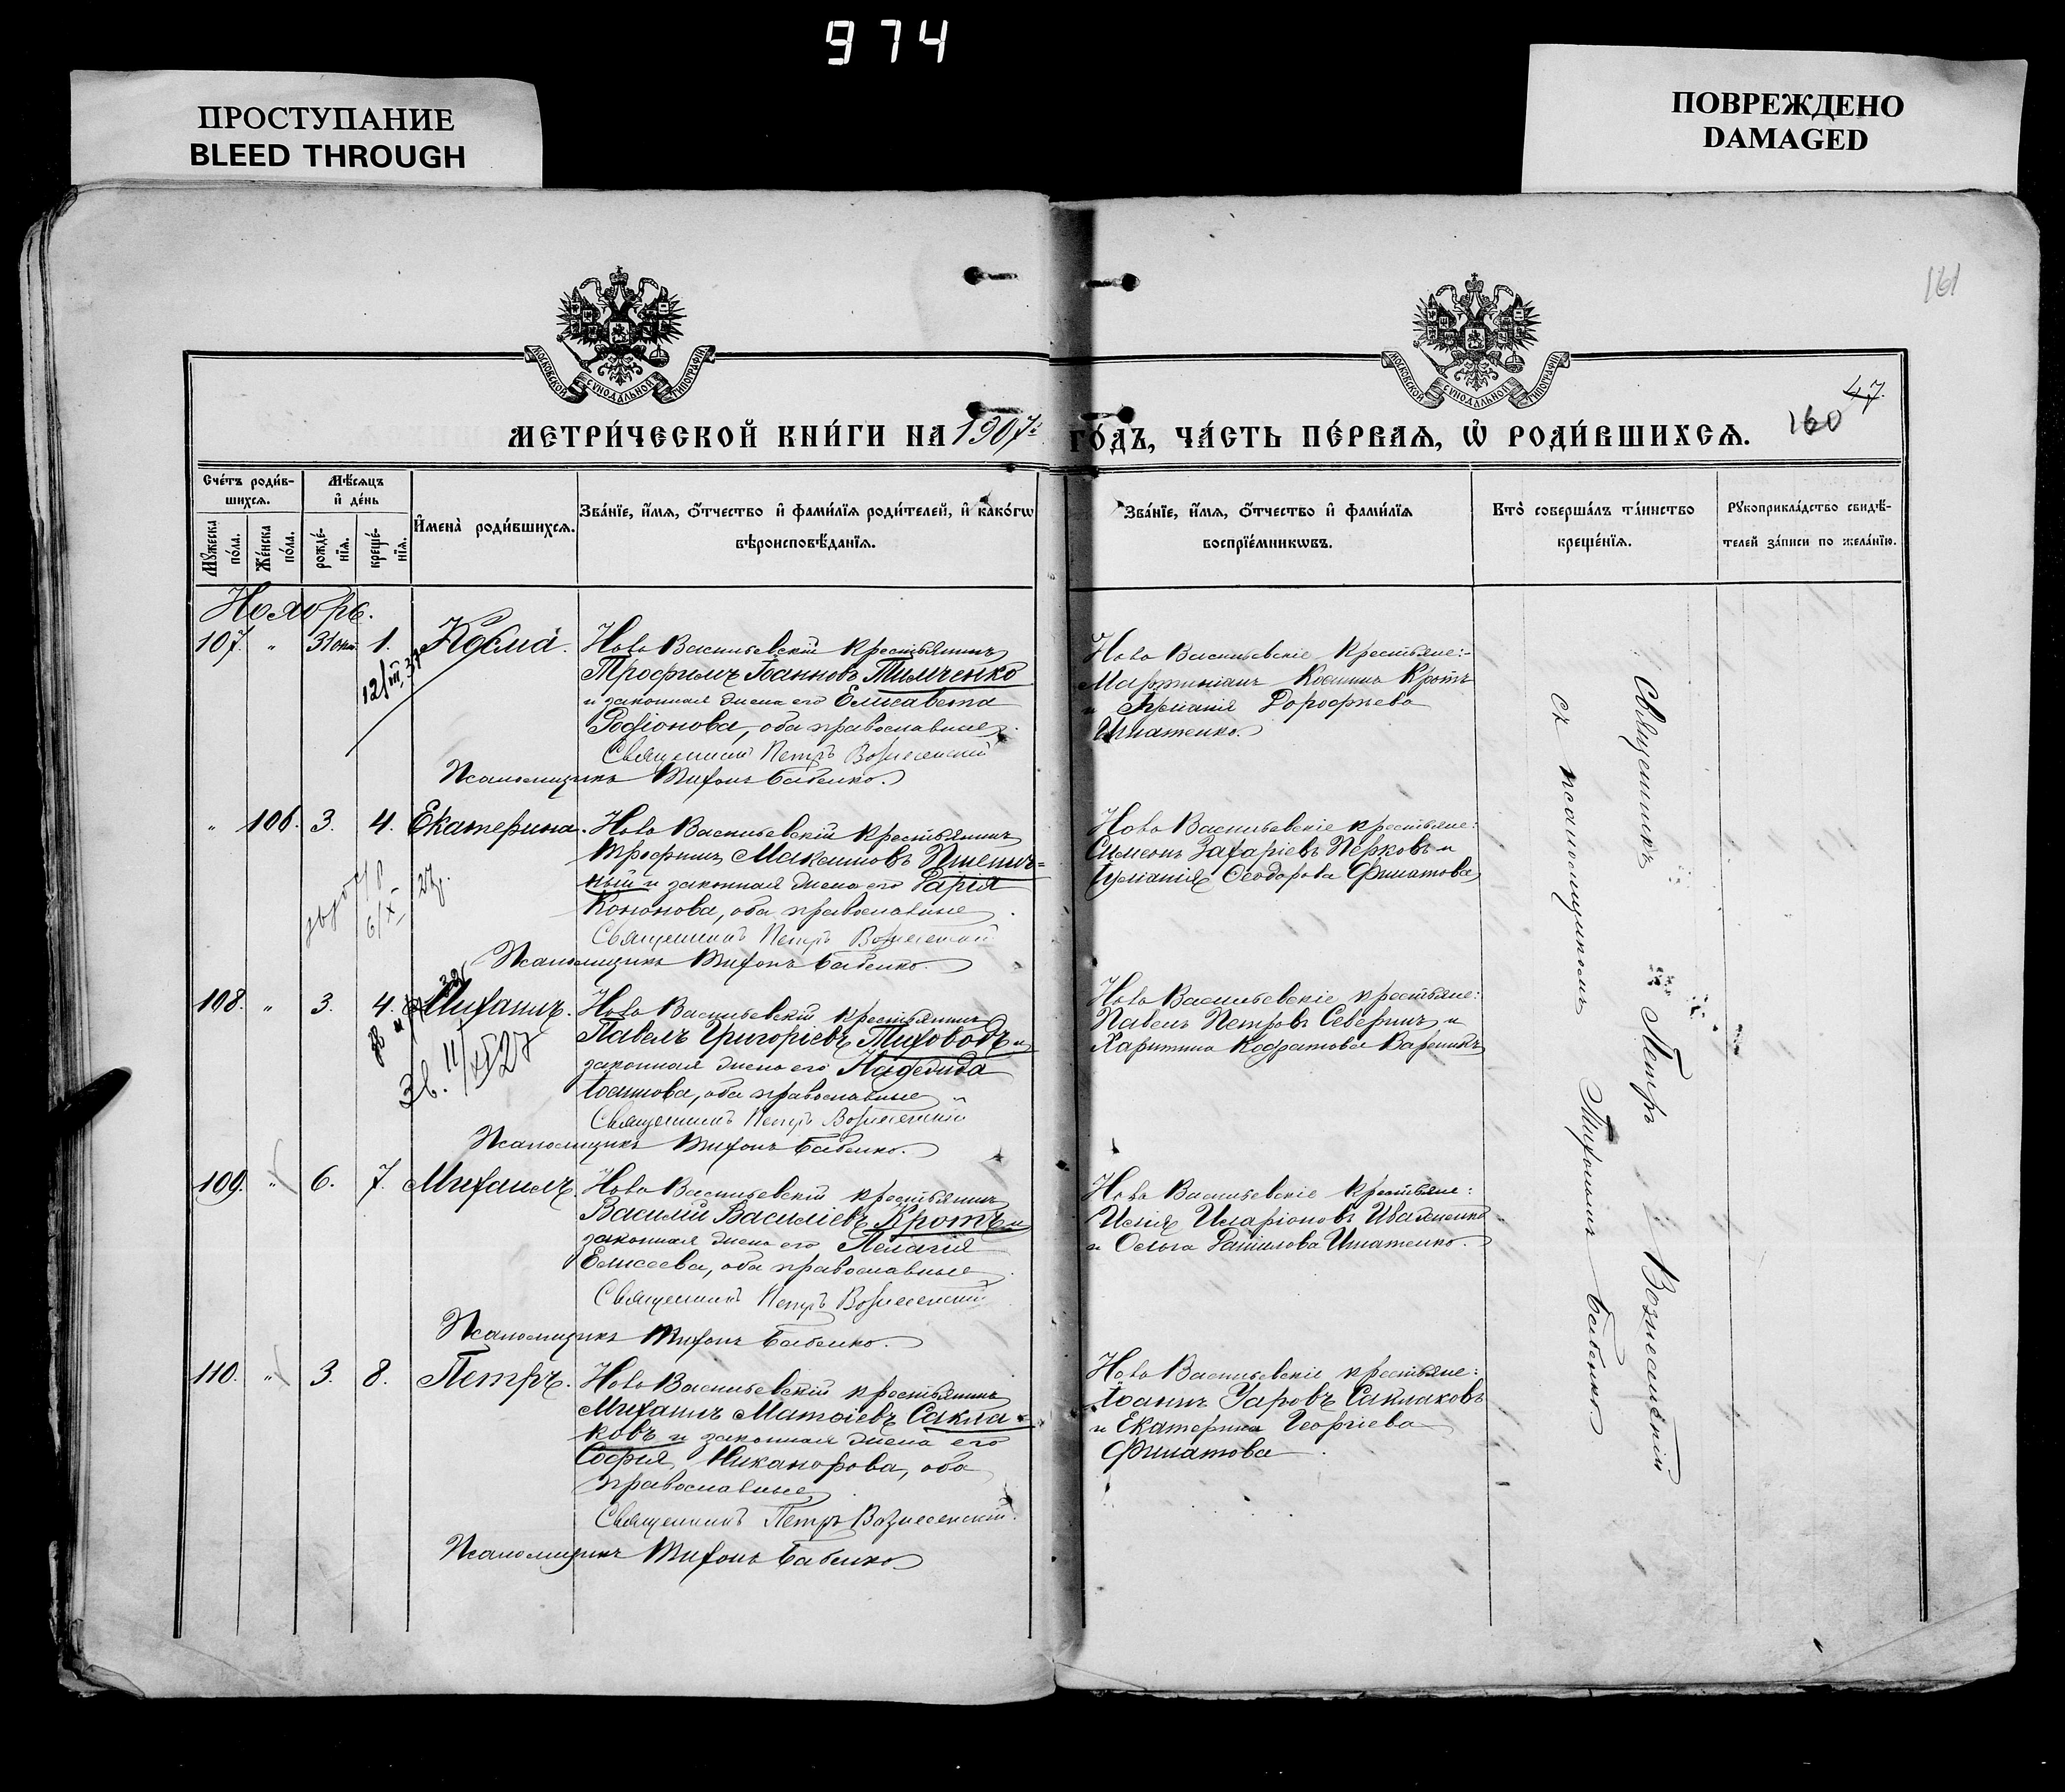 974
ПРОСТУПАНИЕ
BLEED THROUGH
ПОВРЕЖДЕНО
DAMAGED
161
МОСКОВСКОЙ СУНОДАЛЬНОЙ ТИПОГРАФІИ
МОСКОВСКОЙ СУНОДАЛЬНОЙ ТИПОГРАФІИ
47.
160
МЕТРИ́ЧЕСКОЙ КНИ́ГИ НА 1907й ГО́ДЪ, ЧА́СТЬ ПЕ́РВАѦ, Ѡ҆ РОДИ́ВШИХСѦ.
Сче́тъ роди́в-
шихсѧ.
Мѣ́сѧцъ
и҆ де́нь
Мꙋ́жеска по́ла.
Же́нска по́ла.
рожде́-
нїѧ.
креще́-
нїѧ.
И҆мена̀ роди́вшихсѧ.
Зва́нїе, и҆́мѧ, ѻ҆́тчество и҆ фами́лїѧ роди́телей, и҆ како́гѡ
вѣроисповѣ́данїѧ.
Зва́нїе, и҆́мѧ, ѻ҆́тчество и҆ фами́лїѧ
воспрїе́мникѡвъ.
Кто̀ соверша́лъ та́инство
креще́нїѧ.
Рꙋкоприкла́дство свидѣ́-
телей за́писи по жела́нїю.
Ноябрь.
107. " 31 окт. 1. Косма.
12/III 37
Ново Васильевскій крестьянинъ
Трофимъ Іоанновъ Тимченко
и законная жена его Елисавета
Родіонова, оба православные.
Священникъ Петръ Вознесенскій
Псаломщикъ Тихонъ Бабенко.
Ново Васильевскіе крестьяне:
Мартиніанъ Косминъ Кротъ
и Ирина Дорофеева
Игнатенко.
" 106. 3. 4. Екатерина.
6/X 27
Ново Васильевскій крестьянинъ
Трофимъ Максимовъ Пшенич=
ный и законная жена его Дарія
Кононова, оба православные.
Священникъ Петръ Вознесенскій
Псаломщикъ Тихонъ Бабенко.
Ново Васильевскіе крестьяне:
Симеонъ Захаріевъ Перковъ и
Ѳеодорова Филатова
108. " 3. 4. Михаилъ.
Зв. 11/XI 27
Ново Васильевскій крестьянинъ
Павелъ Григоріевъ Тиховодъ и
законная жена его Надежда
Іоаннова, оба православные
Священникъ Петръ Вознесенскій
Псаломщикъ Тихонъ Бабенко.
Ново Васильевскіе крестьяне:
Павелъ Петровъ Северинъ и
Харитина Кодратова Вареникъ
109. " 6. 7. Михаилъ.
Ново Васильевскій крестьянинъ
Василій Василіевъ Кротъ и
законная жена его Пелагія
Елисеева, оба православные.
Священникъ Петръ Вознесенскій
Псаломщикъ Тихонъ Бабенко.
Ново Васильевскіе крестьяне:
Исаія Иларіоновъ Иваненко
и Ольга Даніилова Игнатенко.
110. " 3. 8. Петръ.
Ново Васильевскій крестьянинъ
Михаилъ Матѳіевъ Сакла=
ковъ и законная жена его
Софія Никанорова, оба
православные
Священникъ Петръ Вознесенскій.
Псаломщикъ Тихонъ Бабенко
Ново Васильевскіе крестьяне:
Іоаннъ Уаровъ Саклаковъ
и Екатерина Георгіева
Филатова.
Священникъ Петръ Вознесенскій
съ псаломщикомъ Тихономъ Бабенко